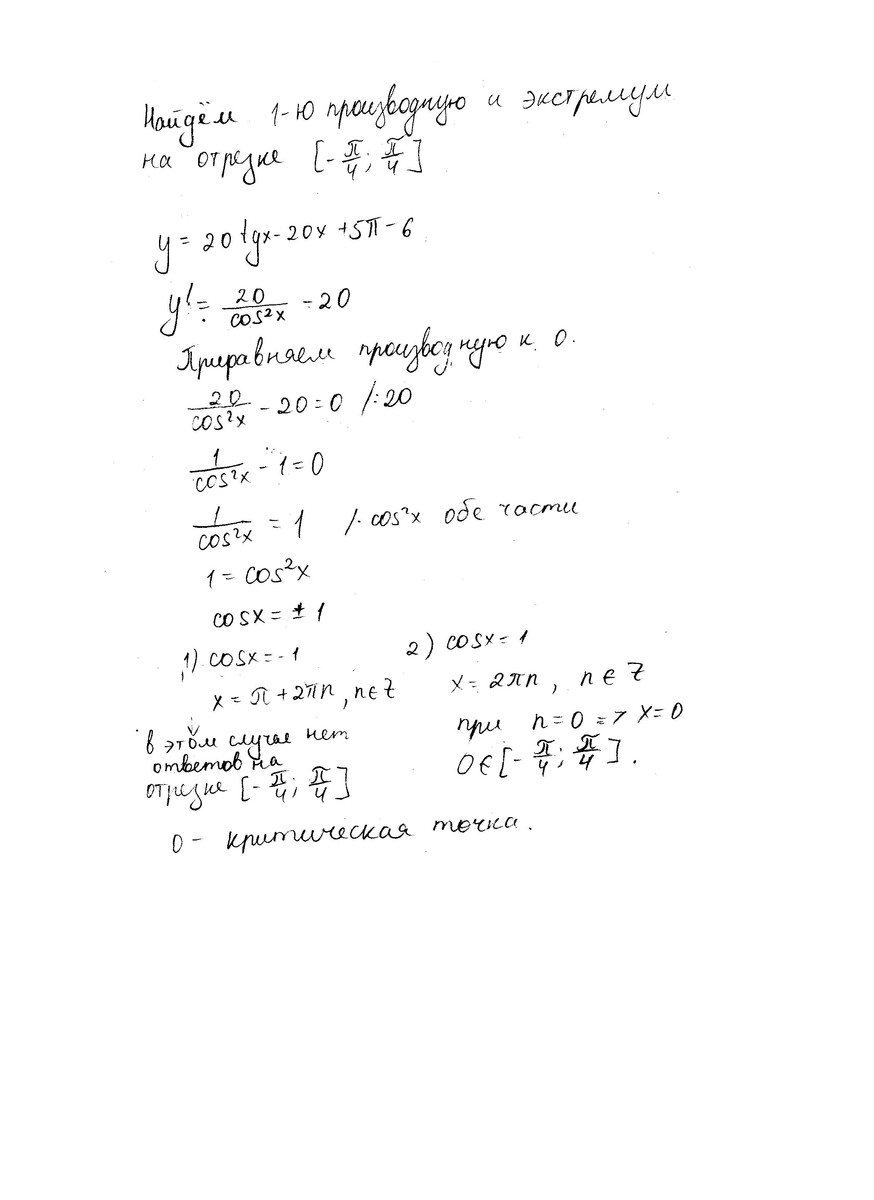 Найдём 1-ю производную и экстремум
на отрезке [-π/4; π/4]
y = 20 tgx - 20x + 5π - 6
y' = 20/cos²x - 20
Приравняем производную к 0.
20/cos²x - 20 = 0 /:20
1/cos²x - 1 = 0
1/cos²x = 1 /· cos²x обе части
1 = cos²x
cosx = ± 1
1) cosx = -1
x = π + 2πn, n∈Z
в этом случае нет
ответов на
отрезке [-π/4; π/4]
2) cosx = 1
x = 2πn, n ∈ Z
при n = 0 => x = 0
0∈[-π/4; π/4].
0 - критическая точка.